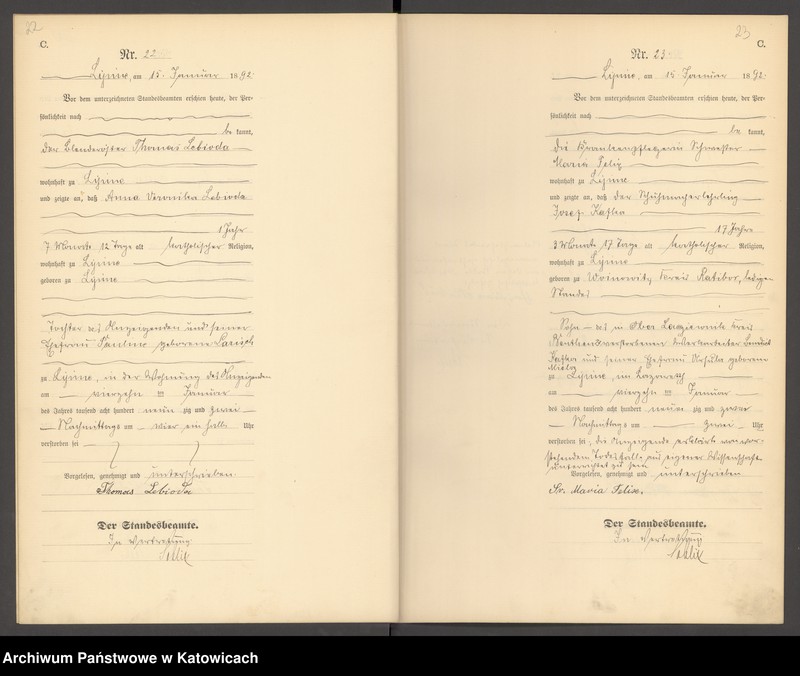 22
C.
Nr. 22
Lipine, am 15. Januar 1892.
Vor dem unterzeichneten Standesbeamten erschien heute, der Per-
sönlichkeit nach
be kannt,
der Thomas Lebioda
wohnhaft zu Lipine
und zeigte an, daß Anna Veronika Lebioda
1 Jahr
7 Monate 12 Tage alt katholischer Religion,
wohnhaft zu Lipine
geboren zu Lipine
Tochter des Anzeigenden und seiner
Ehefrau Pauline geborene
zu Lipine, in der Wohnung des Anzeigenden
am vierzehn ten Januar
des Jahres tausend acht hundert neun zig und zwei
Nachmittags um vier ein halb Uhr
verstorben sei
Vorgelesen, genehmigt und unterschrieben
Thomas Lebioda
Der Standesbeamte.
In Vertretung
23
C.
Nr. 23
Lipine, am 15 Januar 1892.
Vor dem unterzeichneten Standesbeamten erschien heute, der Per-
sönlichkeit nach
be kannt,
die Krankenpflegerin Schwester
Maria Felix
wohnhaft zu Lipine
und zeigte an, daß der Schuhmacherlehrling
Josef Kafka
17 Jahre
3 Monate 17 Tage alt katholischer Religion,
wohnhaft zu Lipine
geboren zu Woinowitz Kreis Ratibor, ledigen
Standes
Sohn des in Ober Lagiewnik Kreis
Beuthen verstorbenen
Kafka und seiner Ehefrau Ursula geborene
zu Lipine, im Lazareth
am vierzehn ten Januar
des Jahres tausend acht hundert neun zig und zwei
Nachmittags um zwei Uhr
verstorben sei, die Anzeigende erklärt von vor-
stehendem Todesfalle aus eigener Wissenschaft
unterrichtet zu sein
Vorgelesen, genehmigt und unterschrieben
Sr. Maria Felix.
Der Standesbeamte.
In Vertretung
Archiwum Państwowe w Katowicach